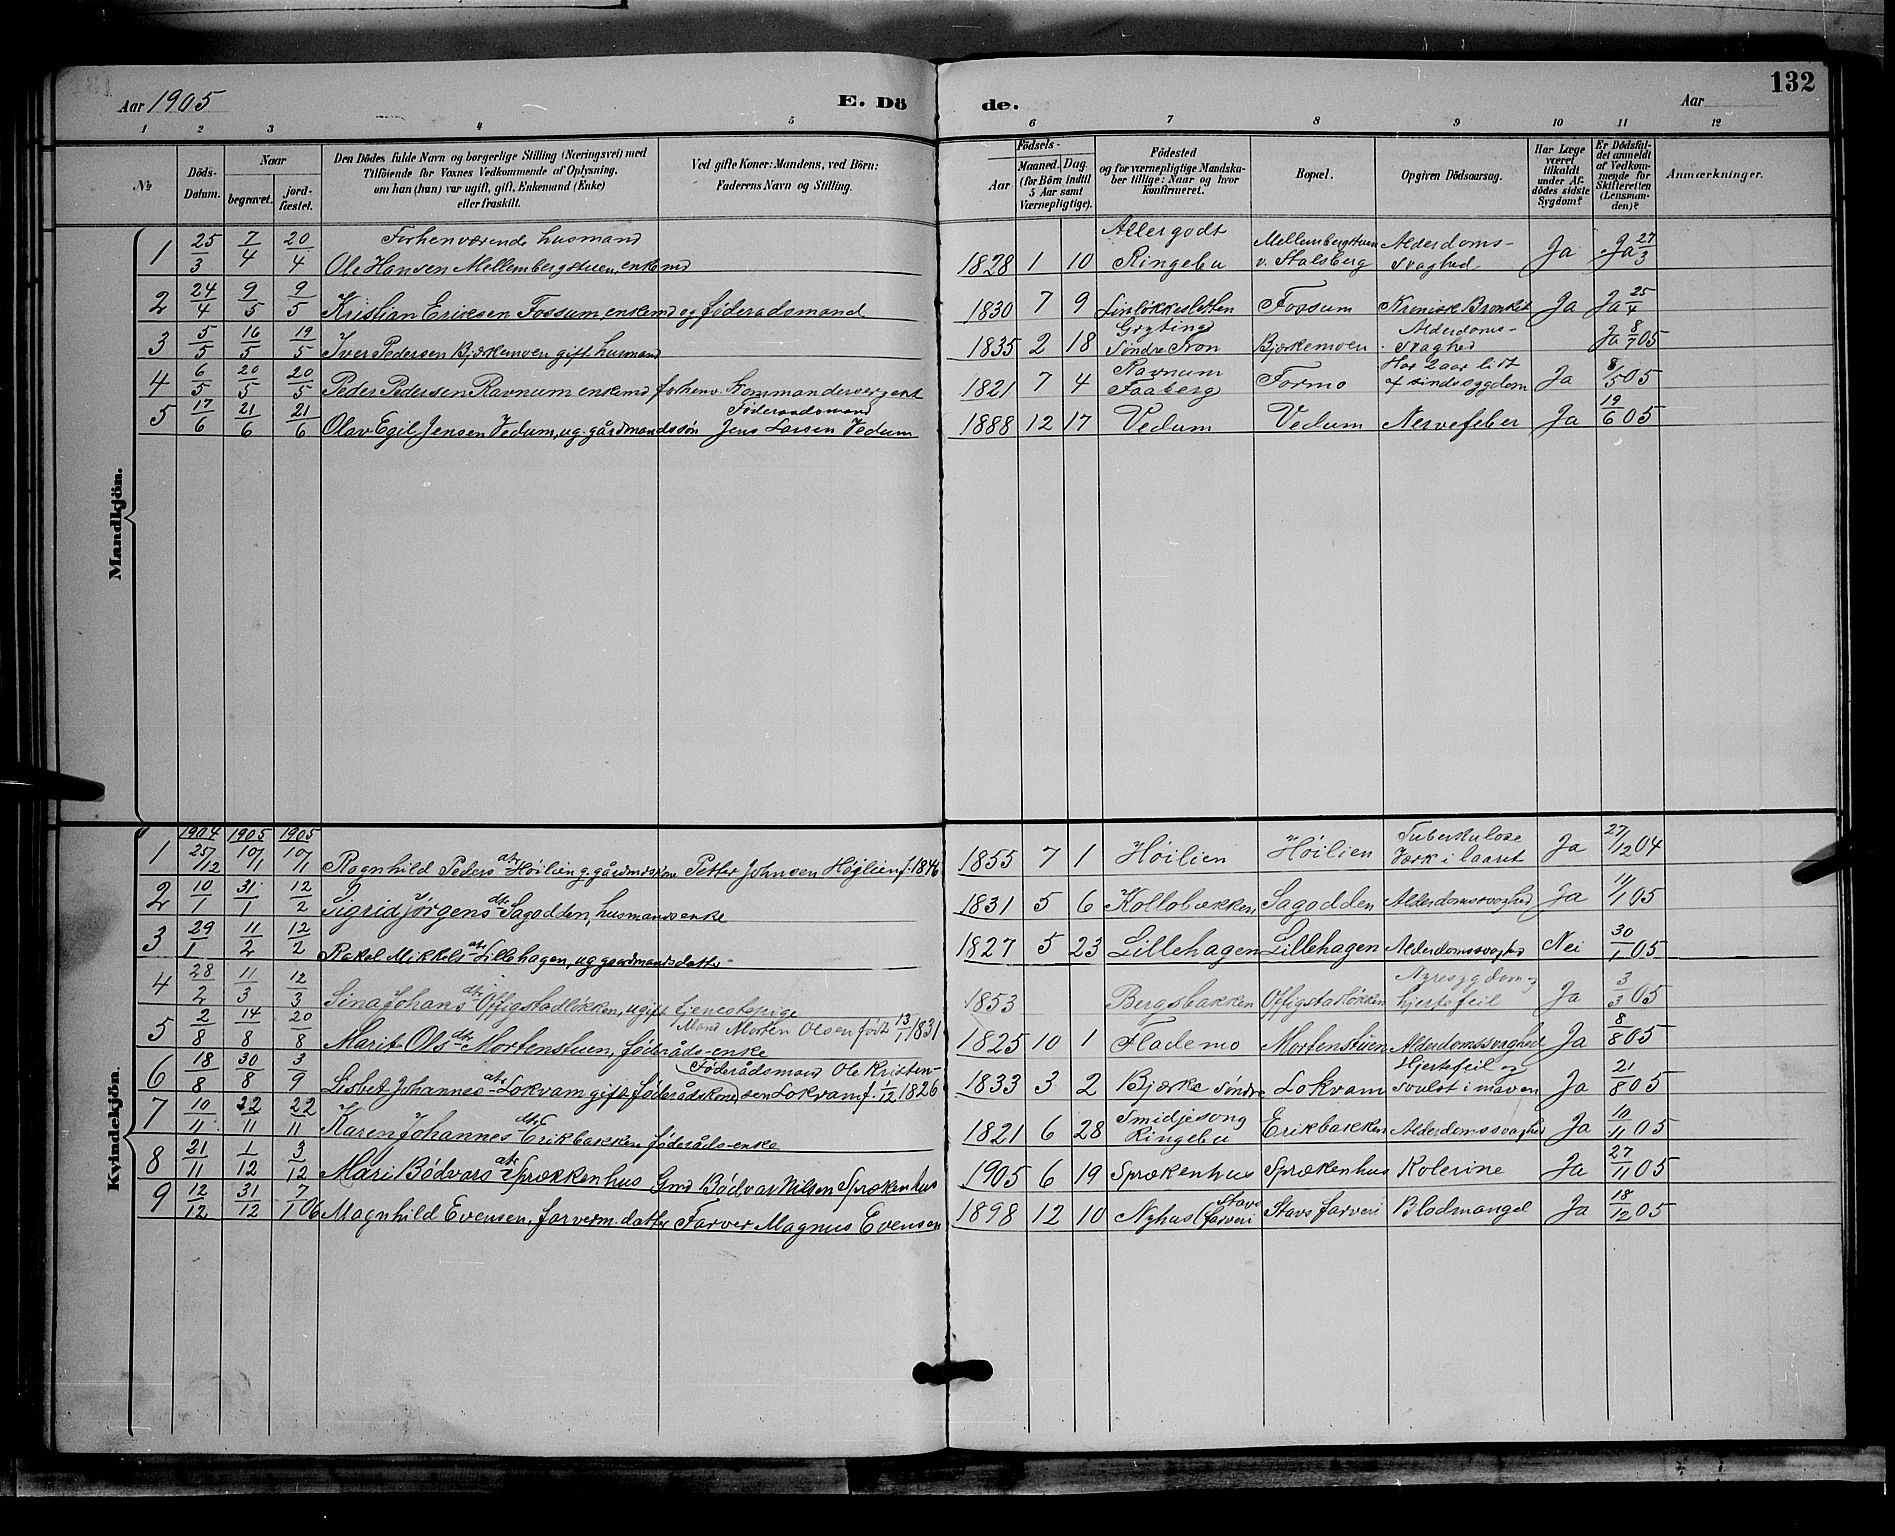 Aar 1905 E. Dö de. Aar 132
1 2 3 4 5 6 7 8 9 10 11 12
No
Döds-Datum.
Naar
begravet.
jord-fæstet.
Den Dödes fulde Navn og borgerlige Stilling (Næringsvei) med
Tilföiende for Voxnes Vedkommende af Oplysning,
om han (hun) var ugift, gift, Enkemand (Enke)
eller fraskilt.
Ved gifte Koner: Mandens, ved Börn:
Faderens Navn og Stilling.
Födsels-
Aar
Maaned. Dag.
(for Börn indtil
5 Aar samt
Værnepligtige).
Födested
og for værnepligtige Mandska-
ber tillige: Naar og hvor
konfirmeret.
Bopæl.
Opgiven Dödsaarsag.
Har Læge
været
tilkaldt
under Af-
dödes sidste
Sygdom?
Er Dödsfal-
det anmeldt
af Vedkom-
mende for
Skifteretten
(Lensman-
den)?
Anmærkninger.
Mandkjön.
1 25/3 7/4 20/4 Forhenværende husmand
Ole Hansen Mellembergstuen, enkemd 1828 1 10 Allergodt Ringebu Mellembergstuen v. Stalsberg Alderdoms-svaghed. Ja Ja 27/3
2 24/4 9/5 9/5 Kristian Eriksen Fossum, enkemd og föderadsmand 1830 7 9 Linløkkesletten Fossum Kronisk Bronkit Ja Ja 25/4
3 5/5 16/5 19/5 Iver Pedersen Bjørkemoen gift husmand 1835 2 18 Grytting Søndre Fron Bjørkemoen Alderdoms-svaghed Ja 8/7 05
4 6/5 20/5 20/5 Peder Pedersen Ravnum enkemd forhenv. Kommandersergent 1821 7 4 Ravnum Faaberg Formo Har 2 aar lidt af sindssygdom Ja 8/5 05
5 17/6 21/6 21/6 Olav Egil Jensen Vedum, ug. gårdmandssøn Föderaadsmand Jens Larsen Vedum 1888 12 17 Vedum Vedum Nervefeber Ja 19/6 05
Kvindekjön.
1904 1905 1905
1 25/12 10/1 10/1 Ragnhild Pedersdtr Høilien g. gårdmdskone Petter Johnsen Høilien f. 1846 1855 7 1 Høilien Høilien Tuberkuløse Værk i laaret Ja 27/12 04
2 10/1 31/1 12/2 Sigrid Jørgensdtr Sagodden, husmandsenke 1831 5 6 Kollobækken Sagodden Alderdomssvaghed Ja 11/1 05
3 29/1 11/2 12/2 Rakel Mikkelsdtr Lillehagen, ug gaardmandsdatter 1827 5 23 Lillehagen Lillehagen Alderdomssvaghed Nei 30/1 05
4 28/2 11/3 12/3 Sina Johansdtr Offigstadløkken, ugift tjenestepige 1853 Bergsbakken Offigstadløkken Nyresygdom og hjertefeil Ja 3/3 05
5 2/8 14/8 20/8 Marit Olsdtr Mortenstuen, föderåds-enke Mand Morten Olsen född 13/1 1831 1825 10 1 Flademo Mortenstuen Alderdomssvaghed Ja 8/8 05
6 18/8 30/8 3/9 Lisbet Johannesdtr Lokvam gift föderådskone Föderådsmand Ole Kristensen Lokvam f. 1/12 1826 1833 3 2 Bjørke søndre Lokvam Hjertefeil og svulst i maven Ja 21/8 05
7 10/11 22/11 22/11 Karen Johannesdtr Erikbakken föderåds-enke 1821 6 28 Smidjesong Ringebu Erikbakken Alderdomssvaghed Ja 10/11 05
8 21/11 1/12 3/12 Mari Bødvarsdtr Sprækkenhus Gmd Bødvar Nilsen Sprækenhus 1905 6 19 Sprækenhus Sprækenhus Kolerine Ja 27/11 05
9 12/12 31/12 7/1 06 Magnhild Evensen, farverm. datter Farver Magnus Evensen 1898 12 10 Nyhus (Stavs farveri Stavs farveri Blodmangel Ja 18/12 05